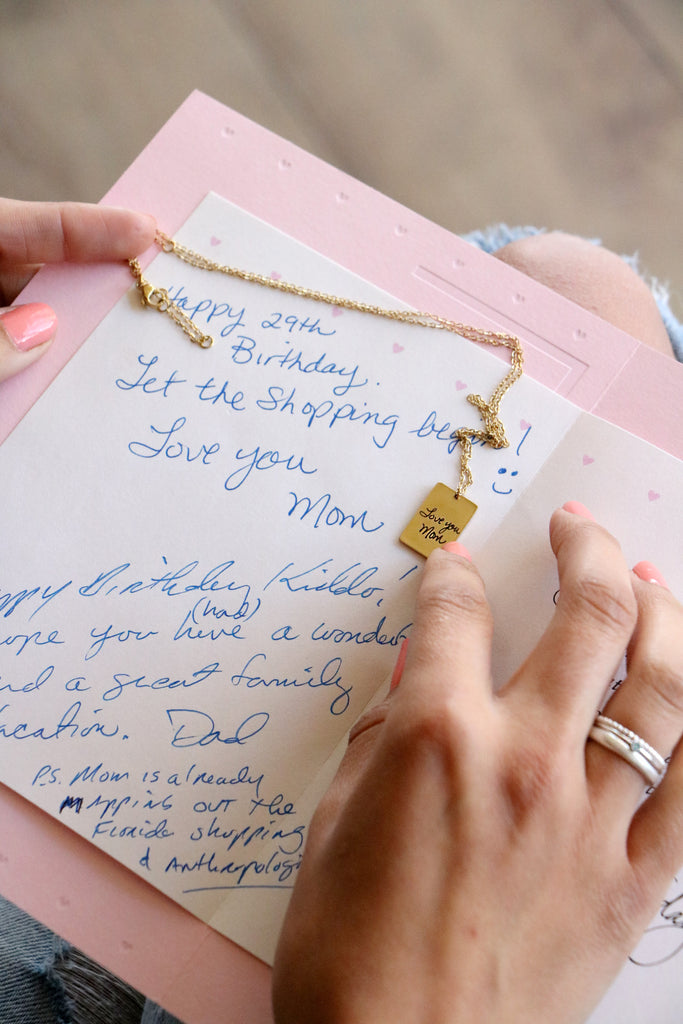 Happy 29th
Birthday.
Let the Shopping begin!
Love you
Mom
Love you
Mom
ppy Birthday Kiddo!
ope you have (had) a wonder
nd a great family
acation. Dad
P.S. Mom is already
mapping out the
Florida shopping
& Anthropologi
day